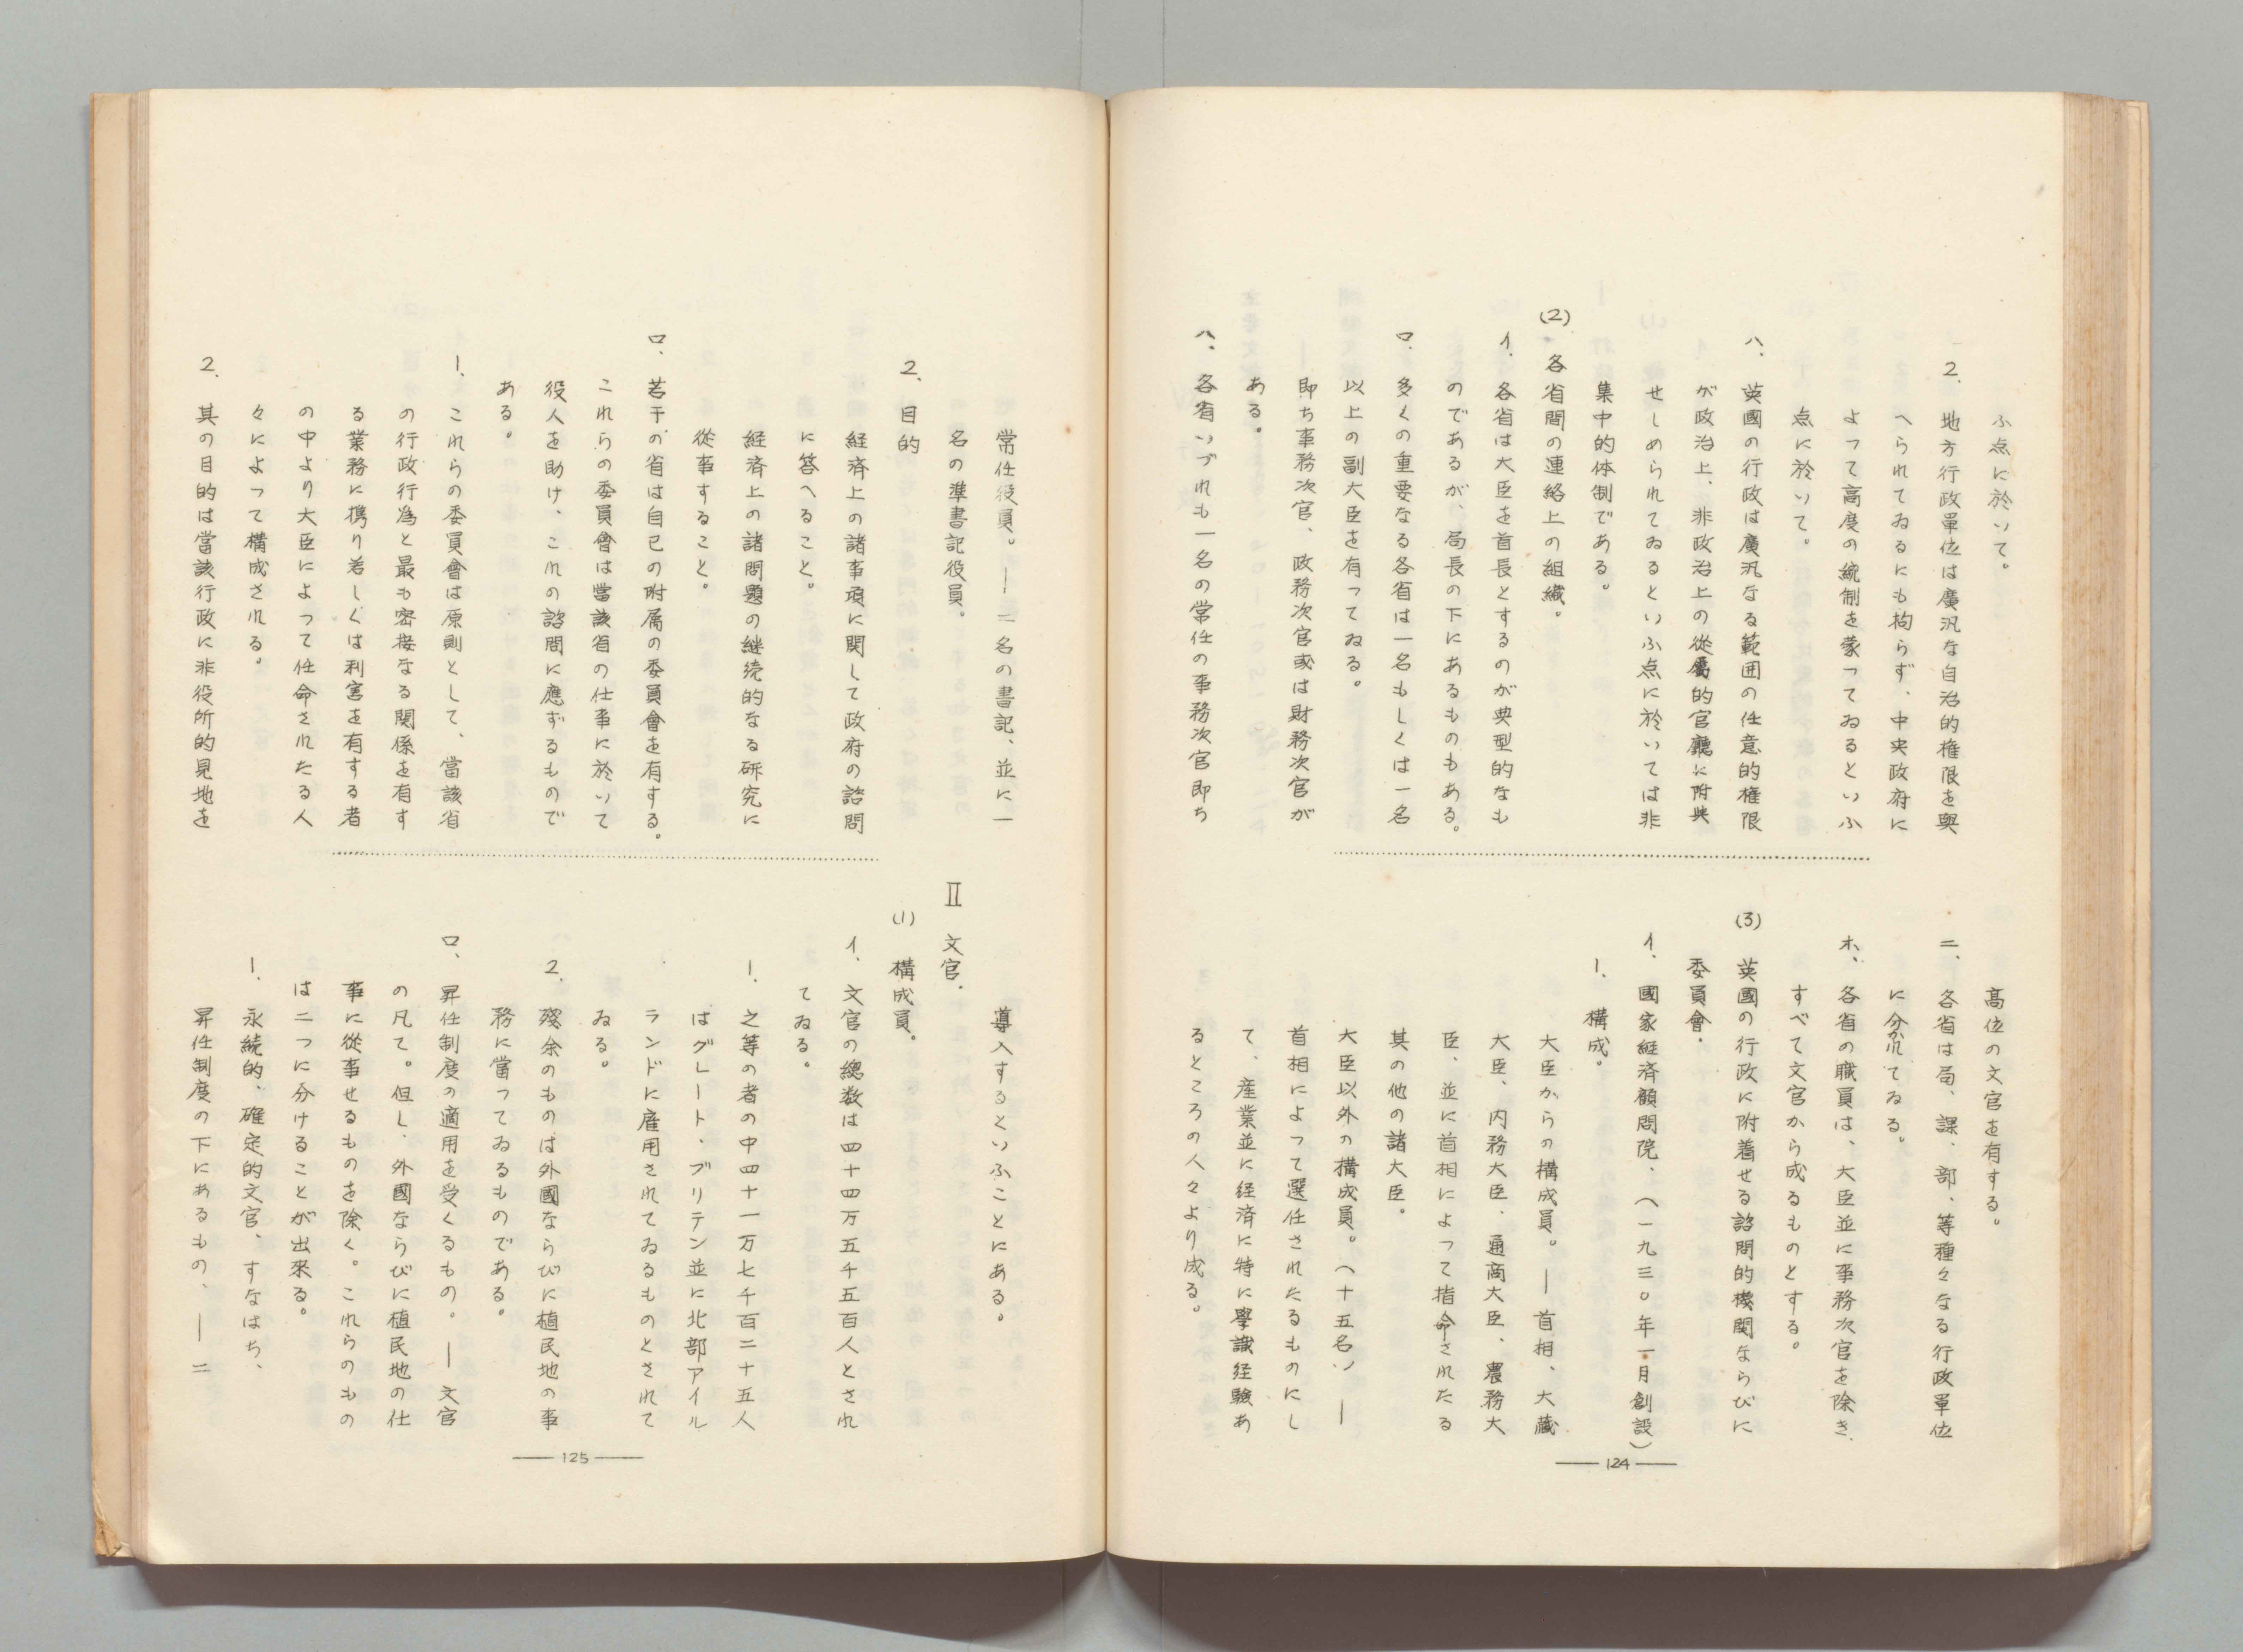 ふ点に於いて。
2. 地方行政單位は廣汎な自治的権限を與
へられてゐるにも拘らず、中央政府に
よって高度の統制を蒙ってゐるといふ
点に於いて。
ハ、英國の行政は廣汎なる範囲の任意的権限
が政治上、非政治上の從屬的官廳に附與
せしめられてゐるといふ点に於いては非
集中的体制である。
(2) 各省間の連絡上の組織。
イ. 各省は大臣を首長とするのが典型的なも
のであるが、局長の下にあるものもある。
ロ. 多くの重要なる各省は一名もしくは一名
以上の副大臣を有ってゐる。
即ち事務次官、政務次官或は財務次官が
ある。
ハ. 各省いづれも一名の常任の事務次官即ち
高位の文官を有する。
ニ、各省は局、課、部、等種々なる行政單位
に分かれてゐる。
ホ、各省の職員は、大臣並に事務次官を除き、
すべて文官から成るものとする。
(3) 英國の行政に附着せる諮問的機関ならびに
委員會.
イ. 國家経済顧問院、(一九三〇年一月創設)
1. 構成。
大臣からの構成員。—首相、大蔵
大臣、内務大臣、通商大臣、農務大
臣、並に首相によって指命されたる
其の他の諸大臣。
大臣以外の構成員。(十五名)—
首相によって選任されたるものにし
て、産業並に経済に特に學識経験あ
るところの人々より成る。
—124—
常任役員。—二名の書記、並に一
名の準書記役員。
2. 目的
経済上の諸事項に関して政府の諮問
に答へること。
経済上の諸問題の継続的なる研究に
從事すること。
ロ、若干の省は自己の附属の委員會を有する。
これらの委員會は當該省の仕事に於いて
役人を助け、これの諮問に應ずるもので
ある。
1. これらの委員會は原則として、當該省
の行政行為と最も密接なる関係を有す
る業務に携り若しくは利害を有する者
の中より大臣によって任命されたる人
々によって構成される。
2. 其の目的は當該行政に非役所的見地を
導入するといふことにある。
II 文官.
(1) 構成員。
イ. 文官の總数は四十四万五千五百人とされ
てゐる。
1. 之等の者の中四十一万七千百二十五人
はグレート・ブリテン並に北部アイル
ランドに雇用されてゐるものとされて
ゐる。
2. 殘余のものは外國ならびに植民地の事
務に當ってゐるものである。
ロ、昇任制度の適用を受くるもの。—文官
の凡て。但し、外國ならびに植民地の仕
事に從事せるものを除く。これらのもの
は二つに分けることが出來る。
1. 永続的、確定的文官、すなはち、
昇任制度の下にあるもの、—二
—125—